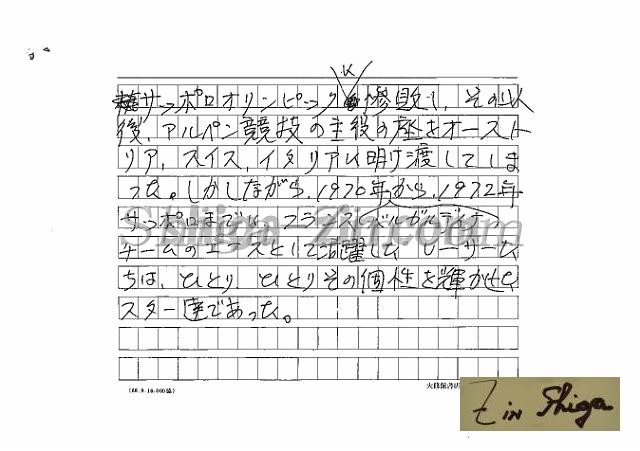 サッポロオリンピックに惨敗し、その以
後、アルペン競技の主役の座をオースト
リア、スイス、イタリアに明け渡してしま
った。しかしながら、1970年から、1972年
サッポロまでは、フランスヴァルガルディナ
チームのエースとして活躍した レーサーた
ちは、ひとり、ひとりその個性を輝かせた
スター達であった。
(60.9.10,000協)
大修館書店
Shiga-Zin.com
Z in Shiga